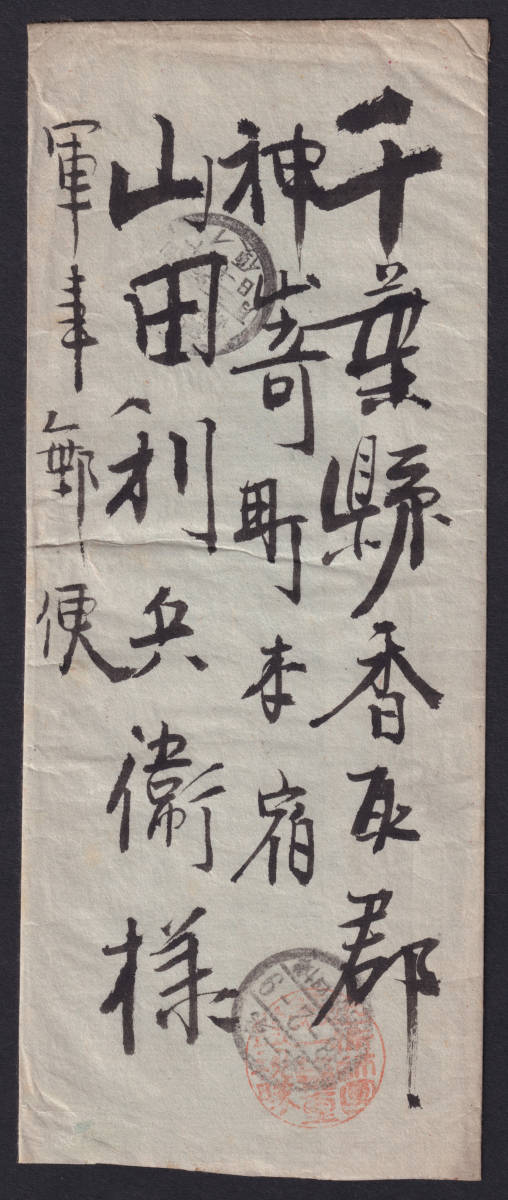 千葉縣香取郡
神嵜町本宿
山田利兵衛様
軍事郵便